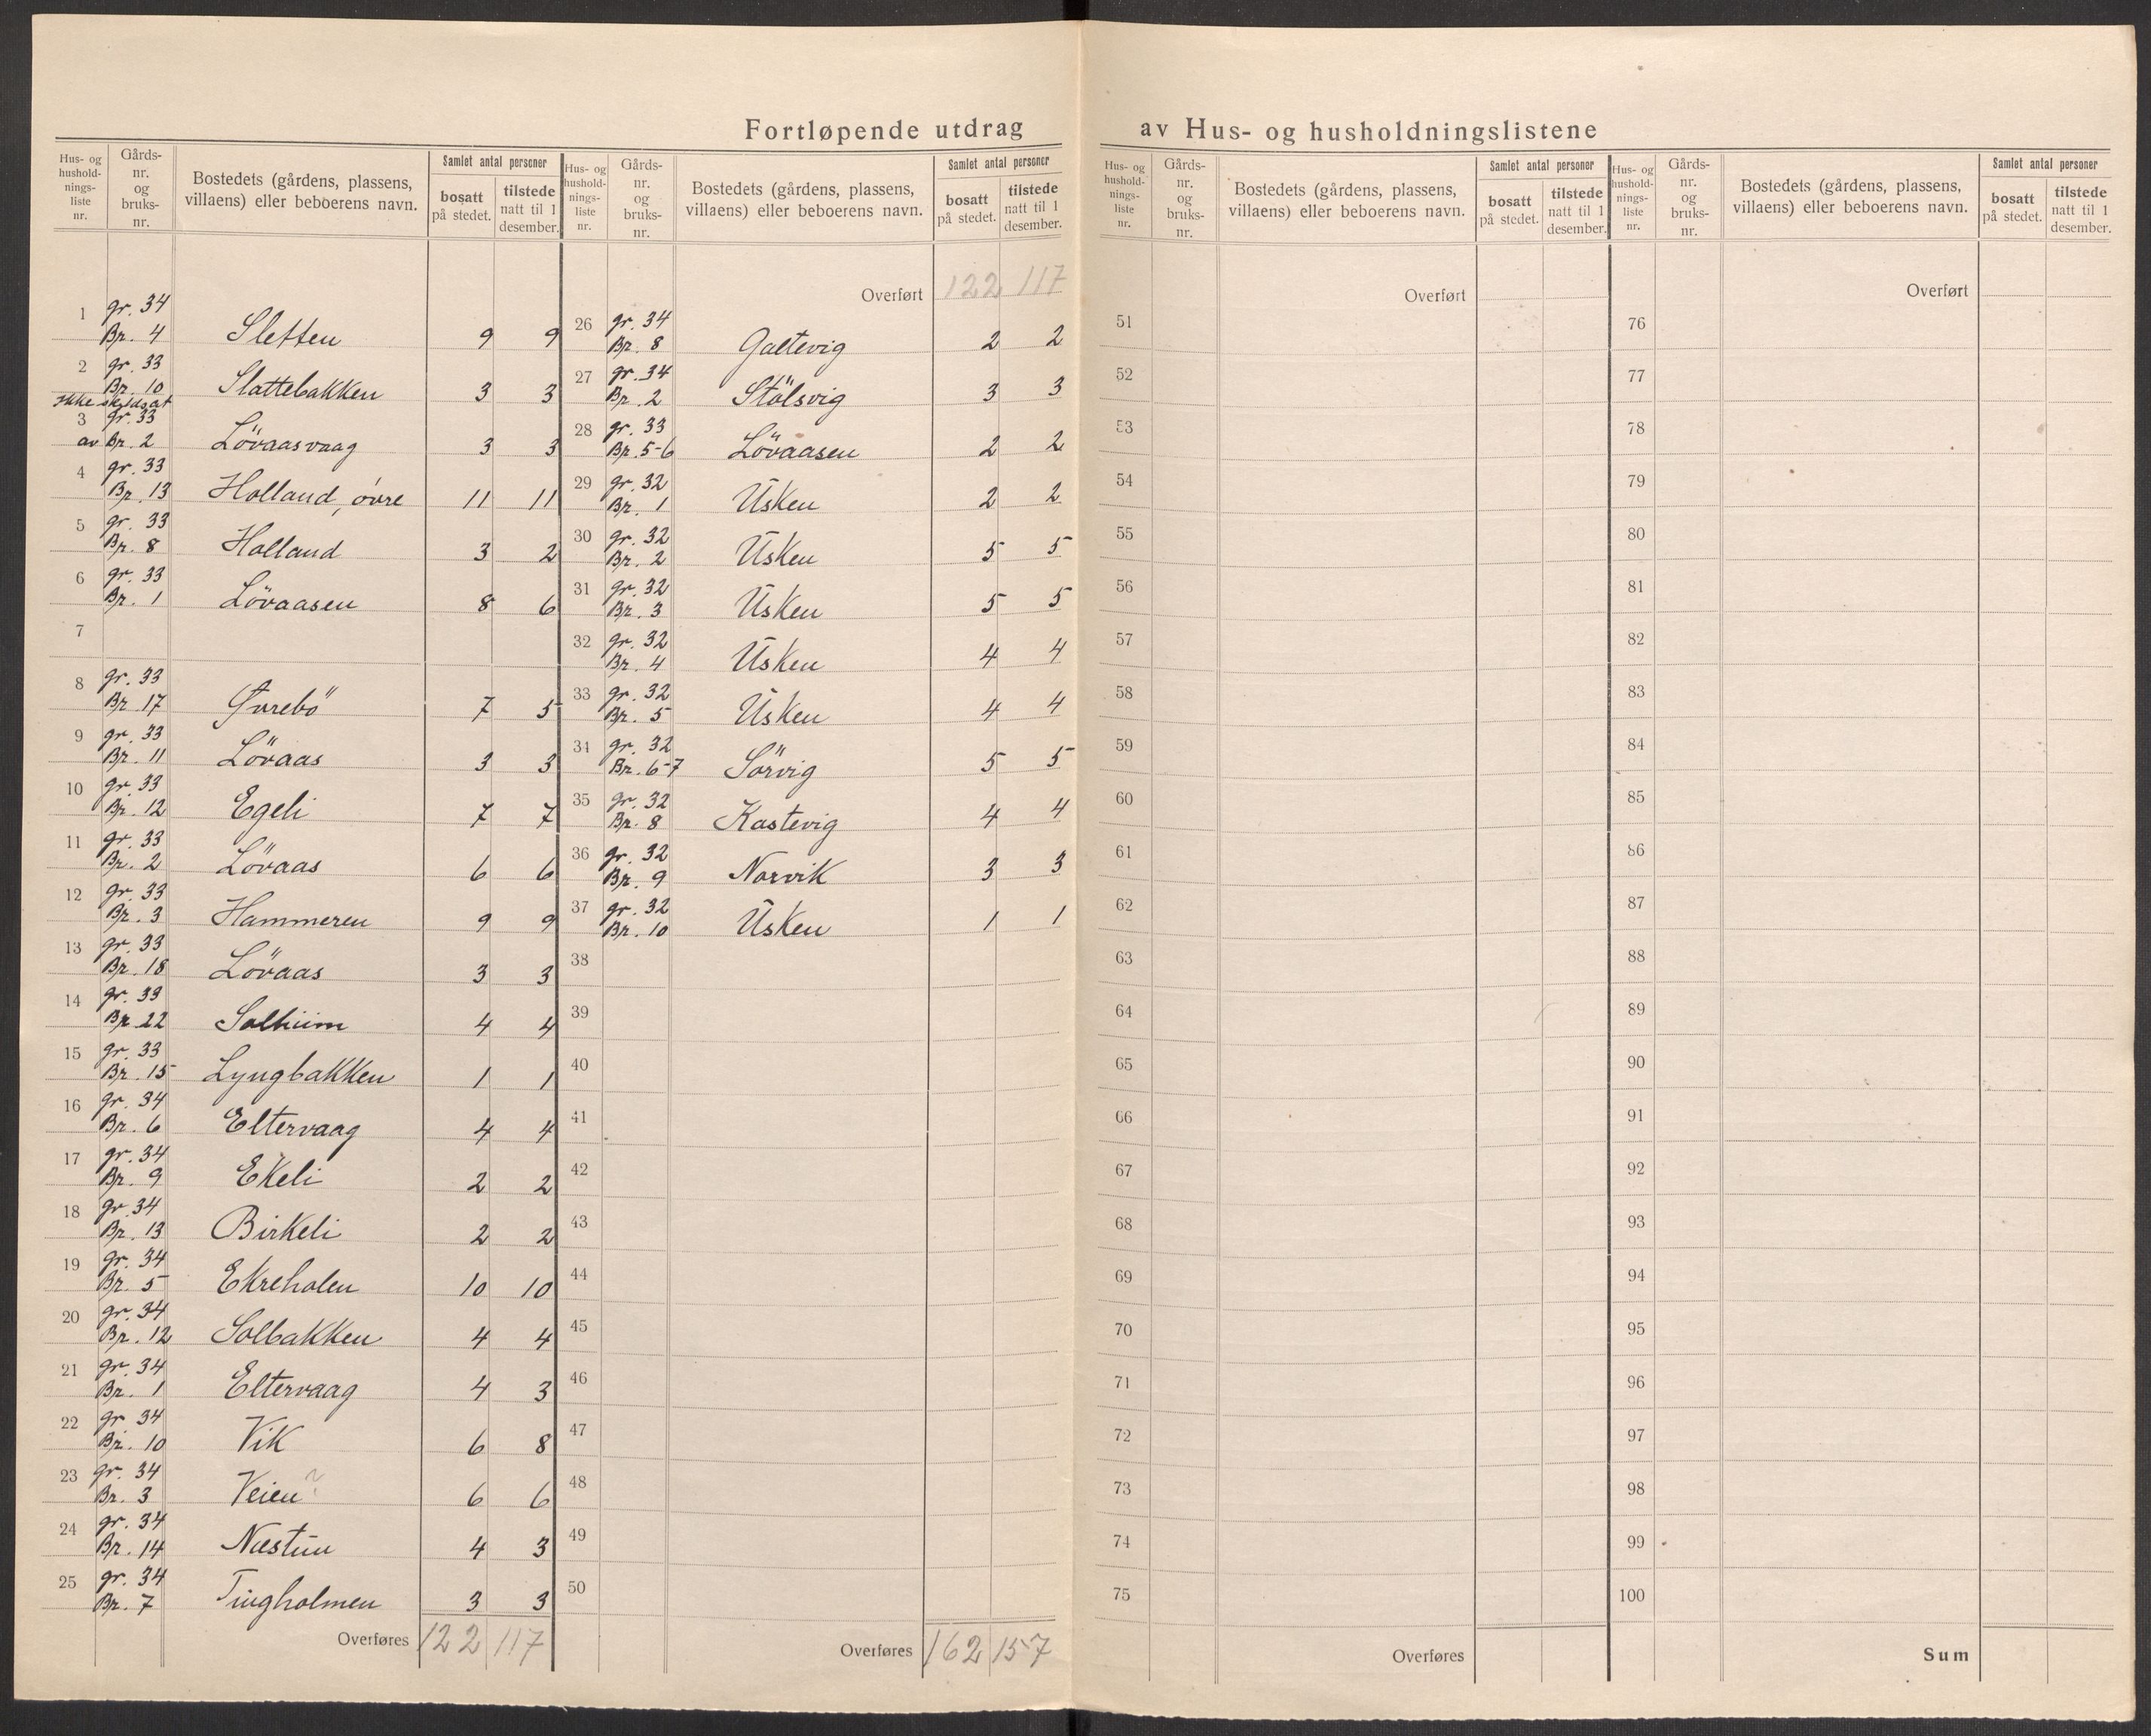 Fortløpende utdrag av Hus- og husholdningslistene
Hus- og husholdningsliste nr. | Gårds- nr. og bruks- nr. | Bostedets (gårdens, plassens, villaens) eller beboerens navn. | Samlet antal personer bosatt på stedet. | tilstede natt til 1 desember.
1 gr. 34 Br. 4 Sletten 9 9
2 gr. 33 Br. 10 Slattebakken 3 3
3 Ikke skyldsat gr. 33 av Br. 2 Lövaasvaag 3 3
4 gr. 33 Br. 13 Holland, övre 11 11
5 gr. 33 Br. 8 Holland 3 2
6 gr. 33 Br. 1 Lövaasen 8 6
7
8 gr. 33 Br. 17 Øvrebö 7 5
9 gr. 33 Br. 11 Lövaas 3 3
10 gr. 33 Br. 12 Egeli 7 7
11 gr. 33 Br. 2 Lövaas 6 6
12 gr. 33 Br. 3 Hammeren 9 9
13 gr. 33 Br. 18 Lövaas 3 3
14 gr. 33 Br. 22 Solheim 4 4
15 gr. 33 Br. 15 Lyngbakken 1 1
16 gr. 34 Br. 6 Eltervaag 4 4
17 gr. 34 Br. 9 Ekeli 2 2
18 gr. 34 Br. 13 Birkeli 2 2
19 gr. 34 Br. 5 Ekreholen 10 10
20 gr. 34 Br. 12 Solbakken 4 4
21 gr. 34 Br. 1 Eltervaag 4 3
22 gr. 34 Br. 10 Vik 6 8
23 gr. 34 Br. 3 Veien ? 6 6
24 gr. 34 Br. 14 Næstun 4 3
25 gr. 34 Br. 7 Tingholmen 3 3
Overføres 122 117
Hus- og husholdningsliste nr. | Gårds- nr. og bruks- nr. | Bostedets (gårdens, plassens, villaens) eller beboerens navn. | Samlet antal personer bosatt på stedet. | tilstede natt til 1 desember.
Overført 122 117
26 gr. 34 Br. 8 Galtevig 2 2
27 gr. 34 Br. 2 Stölsvig 3 3
28 gr. 33 Br. 5-6 Lövaasen 2 2
29 gr. 32 Br. 1 Usken 2 2
30 gr. 32 Br. 2 Usken 5 5
31 gr. 32 Br. 3 Usken 5 5
32 gr. 32 Br. 4 Usken 4 4
33 gr. 32 Br. 5 Usken 4 4
34 gr. 32 Br. 6-7 Sörvig 5 5
35 gr. 32 Br. 8 Kastevig 4 4
36 gr. 32 Br. 9 Norvik 3 3
37 gr. 32 Br. 10 Usken 1 1
38
39
40
41
42
43
44
45
46
47
48
49
50
Overføres 162 157
Hus- og husholdningsliste nr. | Gårds- nr. og bruks- nr. | Bostedets (gårdens, plassens, villaens) eller beboerens navn. | Samlet antal personer bosatt på stedet. | tilstede natt til 1 desember.
Overført
51
52
53
54
55
56
57
58
59
60
61
62
63
64
65
66
67
68
69
70
71
72
73
74
75
Overføres
Hus- og husholdningsliste nr. | Gårds- nr. og bruks- nr. | Bostedets (gårdens, plassens, villaens) eller beboerens navn. | Samlet antal personer bosatt på stedet. | tilstede natt til 1 desember.
Overført
76
77
78
79
80
81
82
83
84
85
86
87
88
89
90
91
92
93
94
95
96
97
98
99
100
Sum